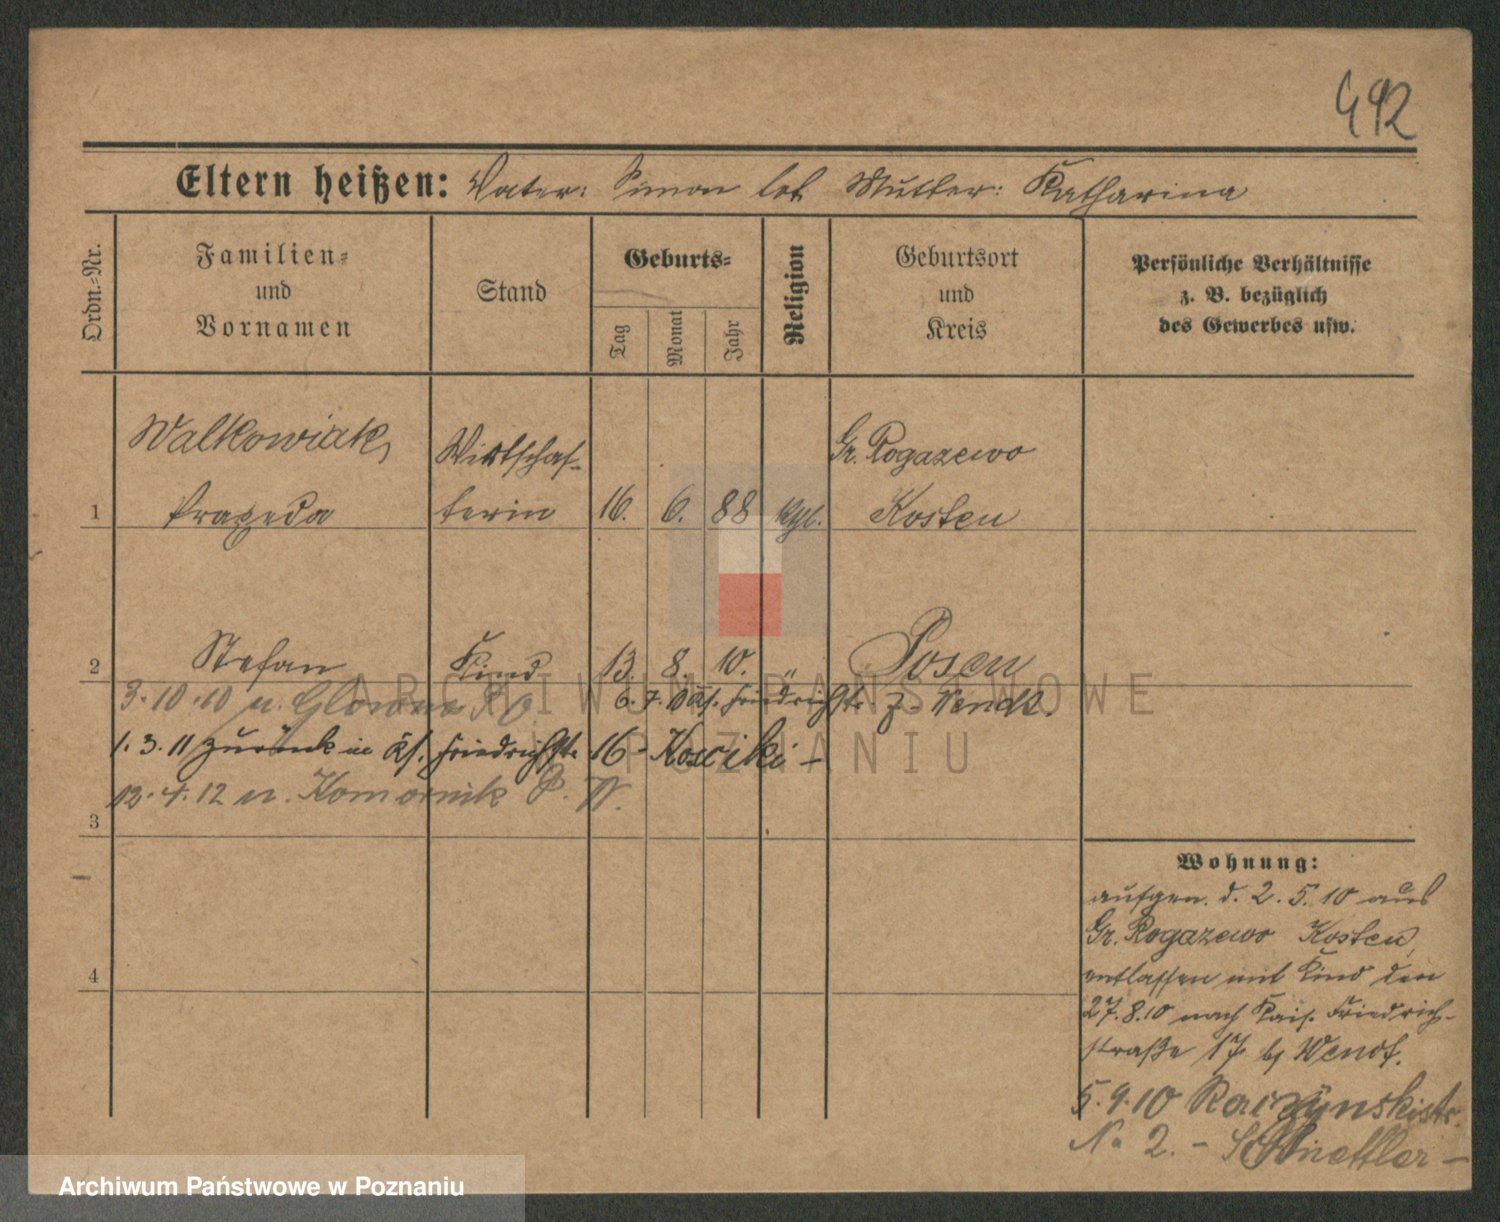 492
Eltern heißen: Vater: Simon tot Mutter: Katharina
Ordn.-Nr.
Familien-
und
Vornamen
Stand
Geburts-
Tag
Monat
Jahr
Religion
Geburtsort
und
Kreis
Persönliche Verhältnisse
z. B. bezüglich
des Gewerbes usw.
Walkowiak,
Wirtschaf-
Gr. Rogazewo
1 Praxeda terin 16. 6. 88 kath. Kosten
2 Stefan Kind 13. 8. 10. " Posen
3.10.10 n. Glowno P. O. 6.7.10 Ks. Friedrichstr. 7. Wendt.
1.3.11 zurück in Ks. Friedrichstr. 16 - Kosicki -
12.4.12 n. Komornik P. W.
3
4
Wohnung:
aufgen. d. 2.5.10 aus
Gr. Rogazewo Kosten,
entlassen mit Kind den
27.8.10 nach Kais. Friedrich-
straße 17 bei Wendt.
5.9.10 Raczynskistr.
No 2. -
ARCHIWUM PAŃSTWOWE
W POZNANIU
Archiwum Państwowe w Poznaniu